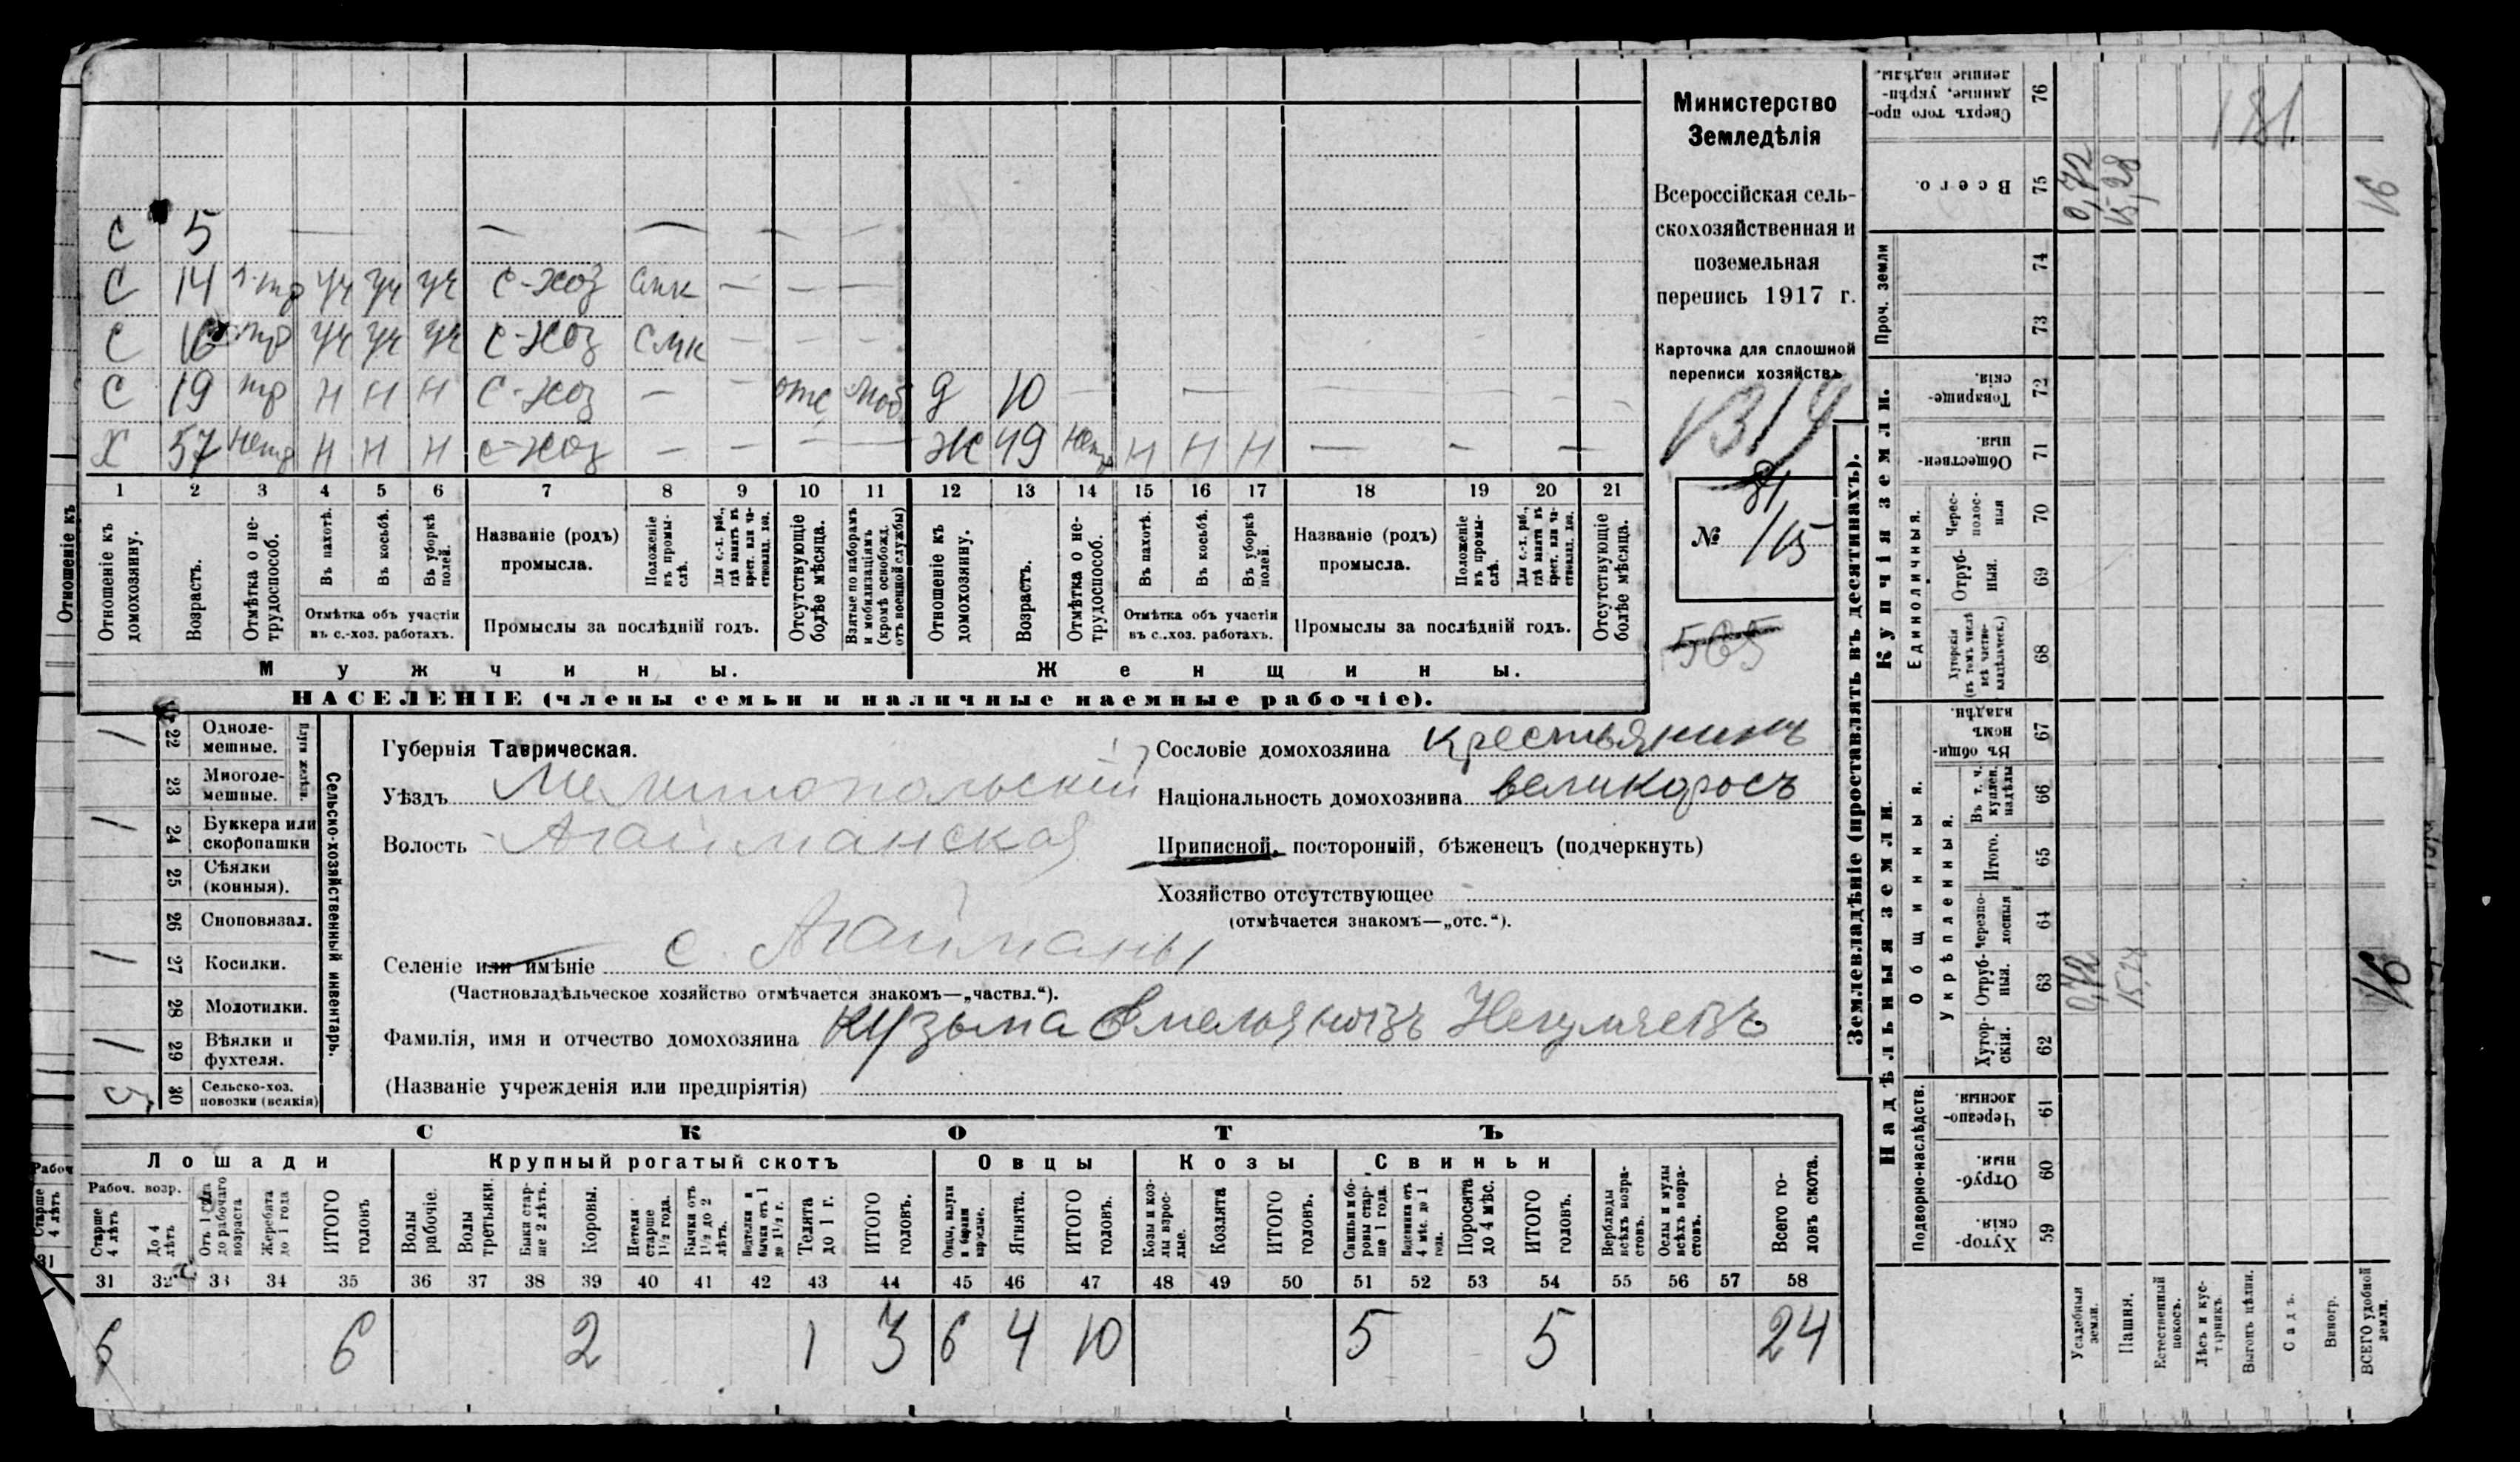 С 5 — — — — —
С 14 п-тр уч уч уч с-хоз смк — — —
С 16 птр уч уч уч с-хоз смк — — —
С 19 тр н н н с-хоз — — отс моб Д 10 — — — — — —
Х 57 нетр н н н с-хоз — — — — Ж 49 нетр н н н — — —
1 2 3 4 5 6 7 8 9 10 11 12 13 14 15 16 17 18 19 20 21
Отношеніе къ домохозяину.
Возрастъ.
Отмѣтка о не-трудоспособ.
Въ пахотѣ.
Въ косьбѣ.
Въ уборкѣ полей.
Отмѣтка объ участіи
въ с.-хоз. работахъ.
Названіе (родъ)
промысла.
Положеніе въ промы-слѣ.
Для с.-х. раб., гдѣ занятъ въ крест. или ча-стновлад. хоз.
Промыслы за послѣдній годъ.
Отсутствующіе болѣе мѣсяца.
Взятые по наборамъ и мобилизаціямъ (кромѣ освобожд. отъ военной службы)
Отношеніе къ домохозяину.
Возрастъ.
Отмѣтка о не-трудоспособ.
Въ пахотѣ.
Въ косьбѣ.
Въ уборкѣ полей.
Отмѣтка объ участіи
въ с.-хоз. работахъ.
Названіе (родъ)
промысла.
Положеніе въ промы-слѣ.
Для с.-х. раб., гдѣ занятъ въ крест. или ча-стновлад. хоз.
Промыслы за послѣдній годъ.
Отсутствующіе болѣе мѣсяца.
Мужчины.
Женщины.
НАСЕЛЕНІЕ (члены семьи и наличные наемные рабочіе).
Министерство
Земледѣлія
Всероссійская сель-
скохозяйственная и
поземельная
перепись 1917 г.
Карточка для сплошной
переписи хозяйствъ
1319
№ 81/115
565
Сельско-хозяйственный инвентарь.
Плуги желѣзн.
1 22 Одноле-мешные.
23 Многоле-мешные.
1 24 Буккера или скоропашки
25 Сѣялки (конныя).
26 Сноповязал.
1 27 Косилки.
28 Молотилки.
1 29 Вѣялки и фухтеля.
30 Сельско-хоз. повозки (всякія)
Губернія Таврическая.
Уѣздъ Мелитопольскій
Волость Агайманская
Селеніе или имѣніе с. Агайманы
(Частновладѣльческое хозяйство отмѣчается знакомъ—„частвл.“).
Фамилія, имя и отчество домохозяина Кузьма Емельяновъ
(Названіе учрежденія или предпріятія)
Сословіе домохозяина крестьянинъ
Національность домохозяина великоросъ
Приписной, посторонній, бѣженецъ (подчеркнуть)
Хозяйство отсутствующее
(отмѣчается знакомъ—„отс.“).
СКОТЪ
Лошади
Крупный рогатый скотъ
Овцы
Козы
Свиньи
Рабоч. возр.
Старше 4 лѣтъ
До 4 лѣтъ
Отъ 1 года до рабочаго возраста
Жеребята до 1 года
ИТОГО головъ
Волы рабочіе.
Волы третьяки.
Быки стар-ше 2 лѣтъ.
Коровы.
Нетели старше 1½ года.
Бычки отъ 1½ до 2 лѣтъ.
Подтелки и бычки отъ 1 до 1½ г.
Телята до 1 г.
ИТОГО головъ.
Овцы, валухи и бараны взрослые.
Ягнята.
ИТОГО головъ.
Козы и коз-лы взрос-лые.
Козлята
ИТОГО головъ.
Свиньи и бо-ровы стар-ше 1 года.
Подсвинки отъ 4 мѣс. до 1 года.
Поросята до 4 мѣс.
ИТОГО головъ.
Верблюды всѣхъ возра-стовъ.
Ослы и мулы всѣхъ возра-стовъ.
Всего го-ловъ скота.
31 32 33 34 35 36 37 38 39 40 41 42 43 44 45 46 47 48 49 50 51 52 53 54 55 56 57 58
6 6 2 1 3 6 4 10 5 5 24
Землевладѣніе (проставлять въ десятинахъ).
Сверхъ того про-данные, укрѣп-ленные надѣлы. 76 181
Всего. 75 0,72 15,28 16
Проч. земли 74
73
Купчія земли.
Товарище-скія. 72
Обществен-ныя. 71
Единоличныя.
Черес-полос-ныя 70
Отруб-ныя. 69
Хуторскія (въ томъ числѣ всѣ частно-владѣльческ.) 68
Надѣльныя земли.
Общинныя.
Въ общи-номъ владѣн. 67
Укрѣпленныя.
Въ т. ч. куплен. надѣлы 66
Итого. 65
Черезпо-лосныя 64
Отруб-ныя. 63 0,72 15,28 16
Хутор-скія. 62
Подворно-наслѣдств.
Черезпо-лосныя. 61
Отруб-ныя. 60
Хутор-скія 59
Усадебныя земли.
Пашня.
Естественный покосъ.
Лѣсъ и кус-тарникъ.
Выгонъ цѣлин.
Садъ.
Виногр.
ВСЕГО удобной земли.
Отношеніе къ
Рабоч
Старше 4 лѣтъ
31